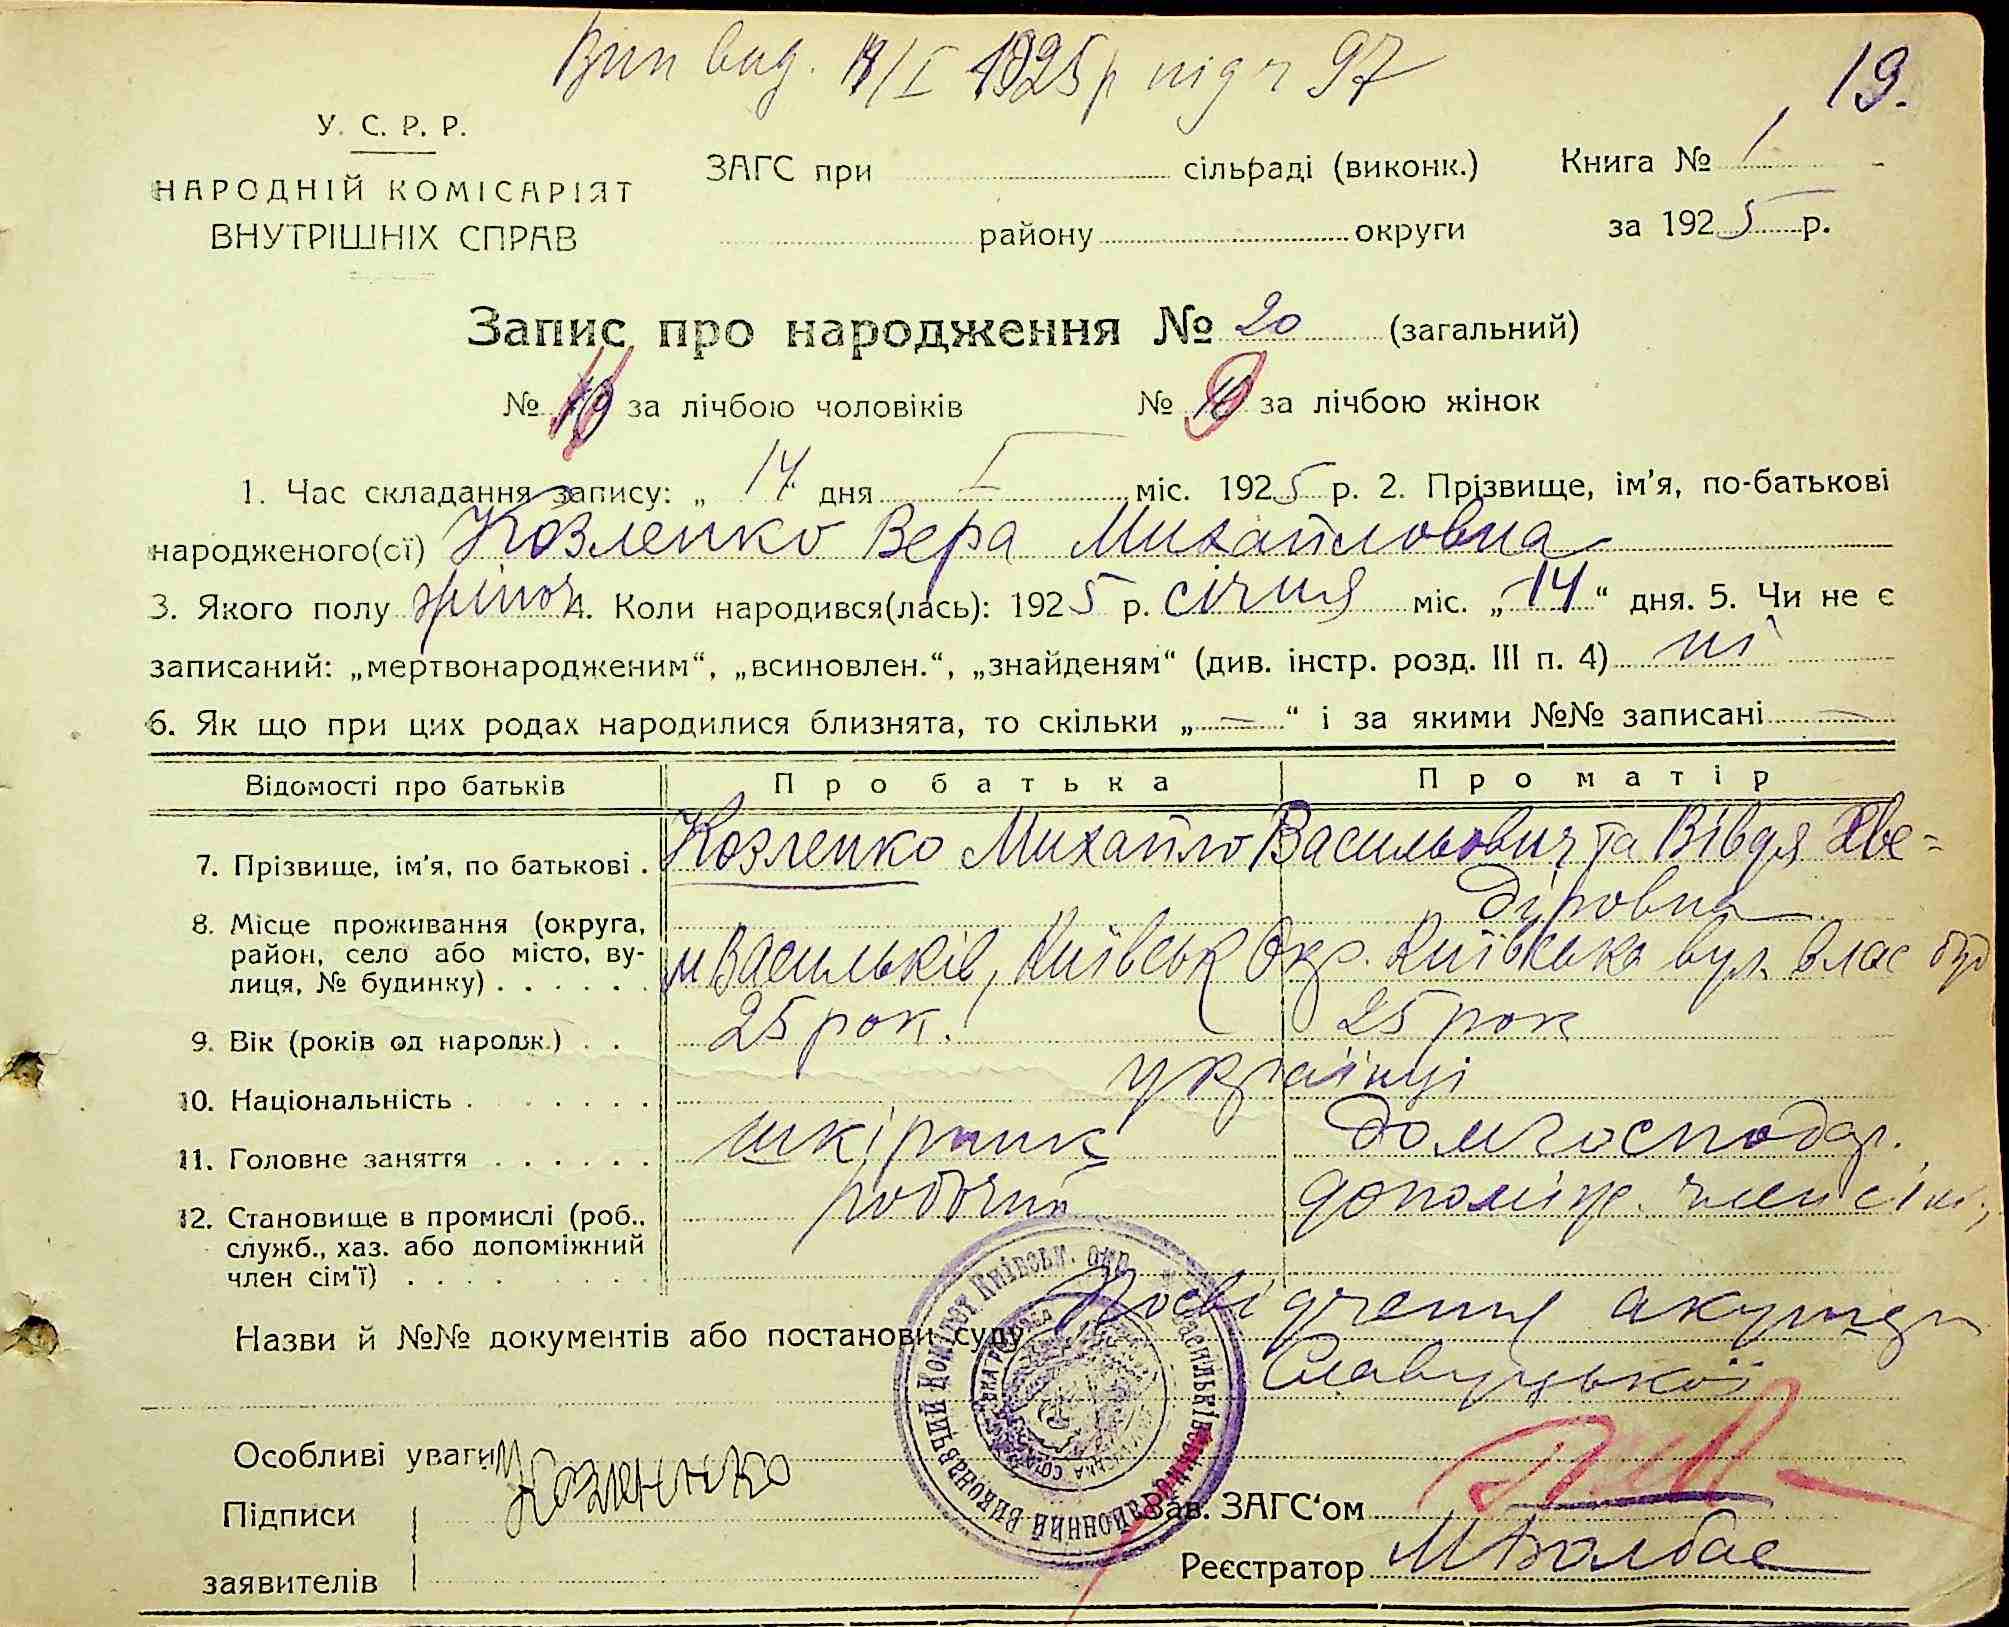 Вип вид. 14/I 1925 р під ч 97
19.
У. С. Р. Р.
НАРОДНІЙ КОМІСАРІЯТ
ВНУТРІШНІХ СПРАВ
ЗАГС при сільраді (виконк.)
району округи
Книга № 1
за 1925 р.
Запис про народження № 20 (загальний)
№ за лічбою чоловіків № 10 за лічбою жінок
1. Час складання запису: „ 14 “ дня I міс. 1925 р. 2. Прізвище, ім'я, по-батькові
народженого(сі) Козленко Вера Михайловна
3. Якого полу жіноч 4. Коли народився(лась): 1925 р. січня міс. „ 14 “ дня. 5. Чи не є
записаний: „мертвонародженим“, „всиновлен.“, „знайденям“ (див. інстр. розд. III п. 4) ні
6. Як що при цих родах народилися близнята, то скільки „ — “ і за якими №№ записані —
Відомості про батьків Про батька Про матір
7. Прізвище, ім'я, по батькові . Козленко Михайло Васильович та Вівдя Хве=
діровна
8. Місце проживання (округа,
район, село або місто, ву-
лиця, № будинку) . . . . . . м Васильків, Київськ Окр. Київська вул. влас буд
9. Вік (років од народж.) . . 25 рок. 25 рок
10. Національність . . . . . . . українці
11. Головне заняття . . . . . . шкірник дом господар.
12. Становище в промислі (роб., робочий допоміжн. член сім.,
служб., хаз. або допоміжний
член сім'ї) . . . . . . . .
Назви й №№ документів або постанови суду Посвідчення акушерки
Славуцької
Особливі уваги
Підписи Козленко
заявителів
Зав. ЗАГС‘ом
Реєстратор М Балбас
Васильківський Районний Виконавчий Комітет Київськ. окр.